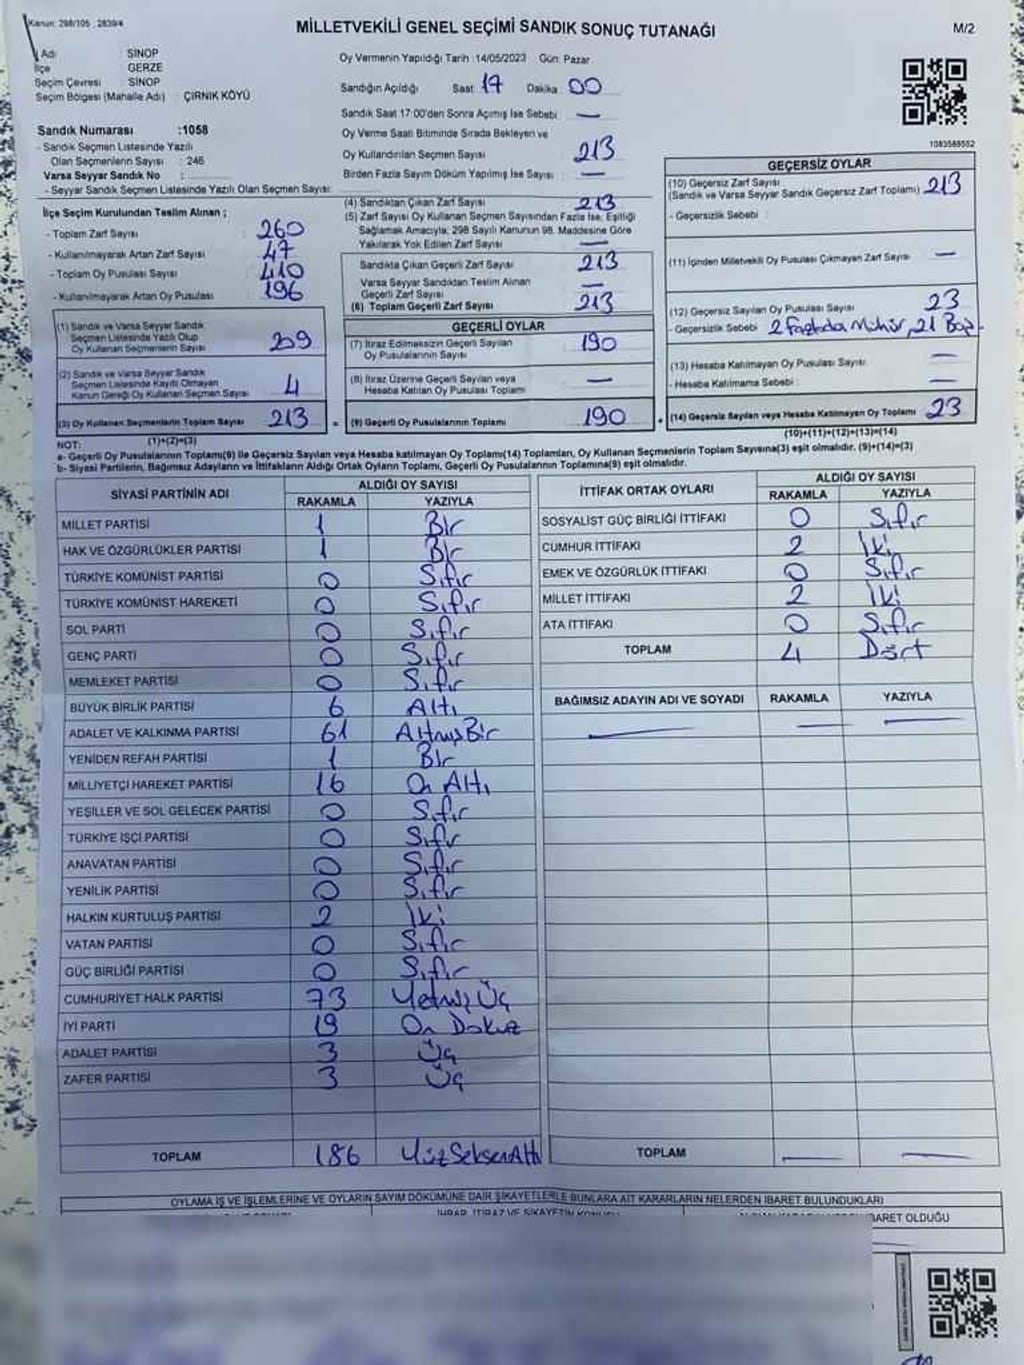 Kanun: 298/105 , 2839/4
MİLLETVEKİLİ GENEL SEÇİMİ SANDIK SONUÇ TUTANAĞI
M/2
Adı SİNOP
İlçe GERZE
Seçim Çevresi SİNOP
Seçim Bölgesi (Mahalle Adı) : ÇIRNIK KÖYÜ
Sandık Numarası :1058
- Sandık Seçmen Listesinde Yazılı
Olan Seçmenlerin Sayısı : 246
Varsa Seyyar Sandık No :
- Seyyar Sandık Seçmen Listesinde Yazılı Olan Seçmen Sayısı:
Oy Vermenin Yapıldığı Tarih :14/05/2023 Gün: Pazar
Sandığın Açıldığı Saat: 17 Dakika: 00
Sandık Saat 17:00'den Sonra Açılmış İse Sebebi —
Oy Verme Saati Bitiminde Sırada Bekleyen ve
Oy Kullandırılan Seçmen Sayısı 213
Birden Fazla Sayım Döküm Yapılmış İse Sayısı : —
1083588552
İlçe Seçim Kurulundan Teslim Alınan ;
- Toplam Zarf Sayısı 260
- Kullanılmayarak Artan Zarf Sayısı 47
- Toplam Oy Pusulası Sayısı 410
- Kullanılmayarak Artan Oy Pusulası 196
(1) Sandık ve Varsa Seyyar Sandık
Seçmen Listesinde Yazılı Olup
Oy Kullanan Seçmenlerin Sayısı 209
(2) Sandık ve Varsa Seyyar Sandık
Seçmen Listesinde Kayıtlı Olmayan
Kanun Gereği Oy Kullanan Seçmen Sayısı 4
(3) Oy Kullanan Seçmenlerin Toplam Sayısı 213 =
(1)+(2)=(3)
(4) Sandıktan Çıkan Zarf Sayısı 213
(5) Zarf Sayısı Oy Kullanan Seçmen Sayısından Fazla İse, Eşitliği
Sağlamak Amacıyla; 298 Sayılı Kanunun 98. Maddesine Göre
Yakılarak Yok Edilen Zarf Sayısı —
Sandıkta Çıkan Geçerli Zarf Sayısı 213
Varsa Seyyar Sandıktan Teslim Alınan
Geçerli Zarf Sayısı —
(6) Toplam Geçerli Zarf Sayısı 213
GEÇERLİ OYLAR
(7) İtiraz Edilmeksizin Geçerli Sayılan
Oy Pusulalarının Sayısı 190
(8) İtiraz Üzerine Geçerli Sayılan veya
Hesaba Katılan Oy Pusulası Toplamı —
(9) Geçerli Oy Pusulalarının Toplamı 190 +
GEÇERSİZ OYLAR
(10) Geçersiz Zarf Sayısı
(Sandık ve Varsa Seyyar Sandık Geçersiz Zarf Toplamı) 213
- Geçersizlik Sebebi :
(11) İçinden Milletvekili Oy Pusulası Çıkmayan Zarf Sayısı —
(12) Geçersiz Sayılan Oy Pusulası Sayısı 23
- Geçersizlik Sebebi 2 Fazlada Mühür, 21 Boş
(13) Hesaba Katılmayan Oy Pusulası Sayısı —
- Hesaba Katılmama Sebebi : —
(14) Geçersiz Sayılan veya Hesaba Katılmayan Oy Toplamı 23
(10)+(11)+(12)+(13)=(14)
NOT:
a- Geçerli Oy Pusulalarının Toplamı(9) ile Geçersiz Sayılan veya Hesaba katılmayan Oy Toplamı(14) Toplamları, Oy Kullanan Seçmenlerin Toplam Sayısına(3) eşit olmalıdır. (9)+(14)=(3)
b- Siyasi Partilerin, Bağımsız Adayların ve İttifakların Aldığı Ortak Oyların Toplamı, Geçerli Oy Pusulalarının Toplamına(9) eşit olmalıdır.
SİYASİ PARTİNİN ADI ALDIĞI OY SAYISI
RAKAMLA YAZIYLA
MİLLET PARTİSİ 1 Bir
HAK VE ÖZGÜRLÜKLER PARTİSİ 1 Bir
TÜRKİYE KOMÜNİST PARTİSİ 0 Sıfır
TÜRKİYE KOMÜNİST HAREKETİ 0 Sıfır
SOL PARTİ 0 Sıfır
GENÇ PARTİ 0 Sıfır
MEMLEKET PARTİSİ 0 Sıfır
BÜYÜK BİRLİK PARTİSİ 6 Altı
ADALET VE KALKINMA PARTİSİ 61 AltmışBir
YENİDEN REFAH PARTİSİ 1 Bir
MİLLİYETÇİ HAREKET PARTİSİ 16 On Altı
YEŞİLLER VE SOL GELECEK PARTİSİ 0 Sıfır
TÜRKİYE İŞÇİ PARTİSİ 0 Sıfır
ANAVATAN PARTİSİ 0 Sıfır
YENİLİK PARTİSİ 0 Sıfır
HALKIN KURTULUŞ PARTİSİ 2 İki
VATAN PARTİSİ 0 Sıfır
GÜÇ BİRLİĞİ PARTİSİ 0 Sıfır
CUMHURİYET HALK PARTİSİ 73 Yetmiş Üç
İYİ PARTİ 19 On Dokuz
ADALET PARTİSİ 3 Üç
ZAFER PARTİSİ 3 Üç
TOPLAM 186 YüzSeksenAltı
İTTİFAK ORTAK OYLARI ALDIĞI OY SAYISI
RAKAMLA YAZIYLA
SOSYALİST GÜÇ BİRLİĞİ İTTİFAKI 0 Sıfır
CUMHUR İTTİFAKI 2 İki
EMEK VE ÖZGÜRLÜK İTTİFAKI 0 Sıfır
MİLLET İTTİFAKI 2 İki
ATA İTTİFAKI 0 Sıfır
TOPLAM 4 Dört
BAĞIMSIZ ADAYIN ADI VE SOYADI RAKAMLA YAZIYLA
— — —
TOPLAM — —
OYLAMA İŞ VE İŞLEMLERİNE VE OYLARIN SAYIM DÖKÜMÜNE DAİR ŞİKAYETLERLE BUNLARA AİT KARARLARIN NELERDEN İBARET BULUNDUKLARI
İHBAR, İTİRAZ VE ŞİKAYETİN KONUSU
İBARET OLDUĞU